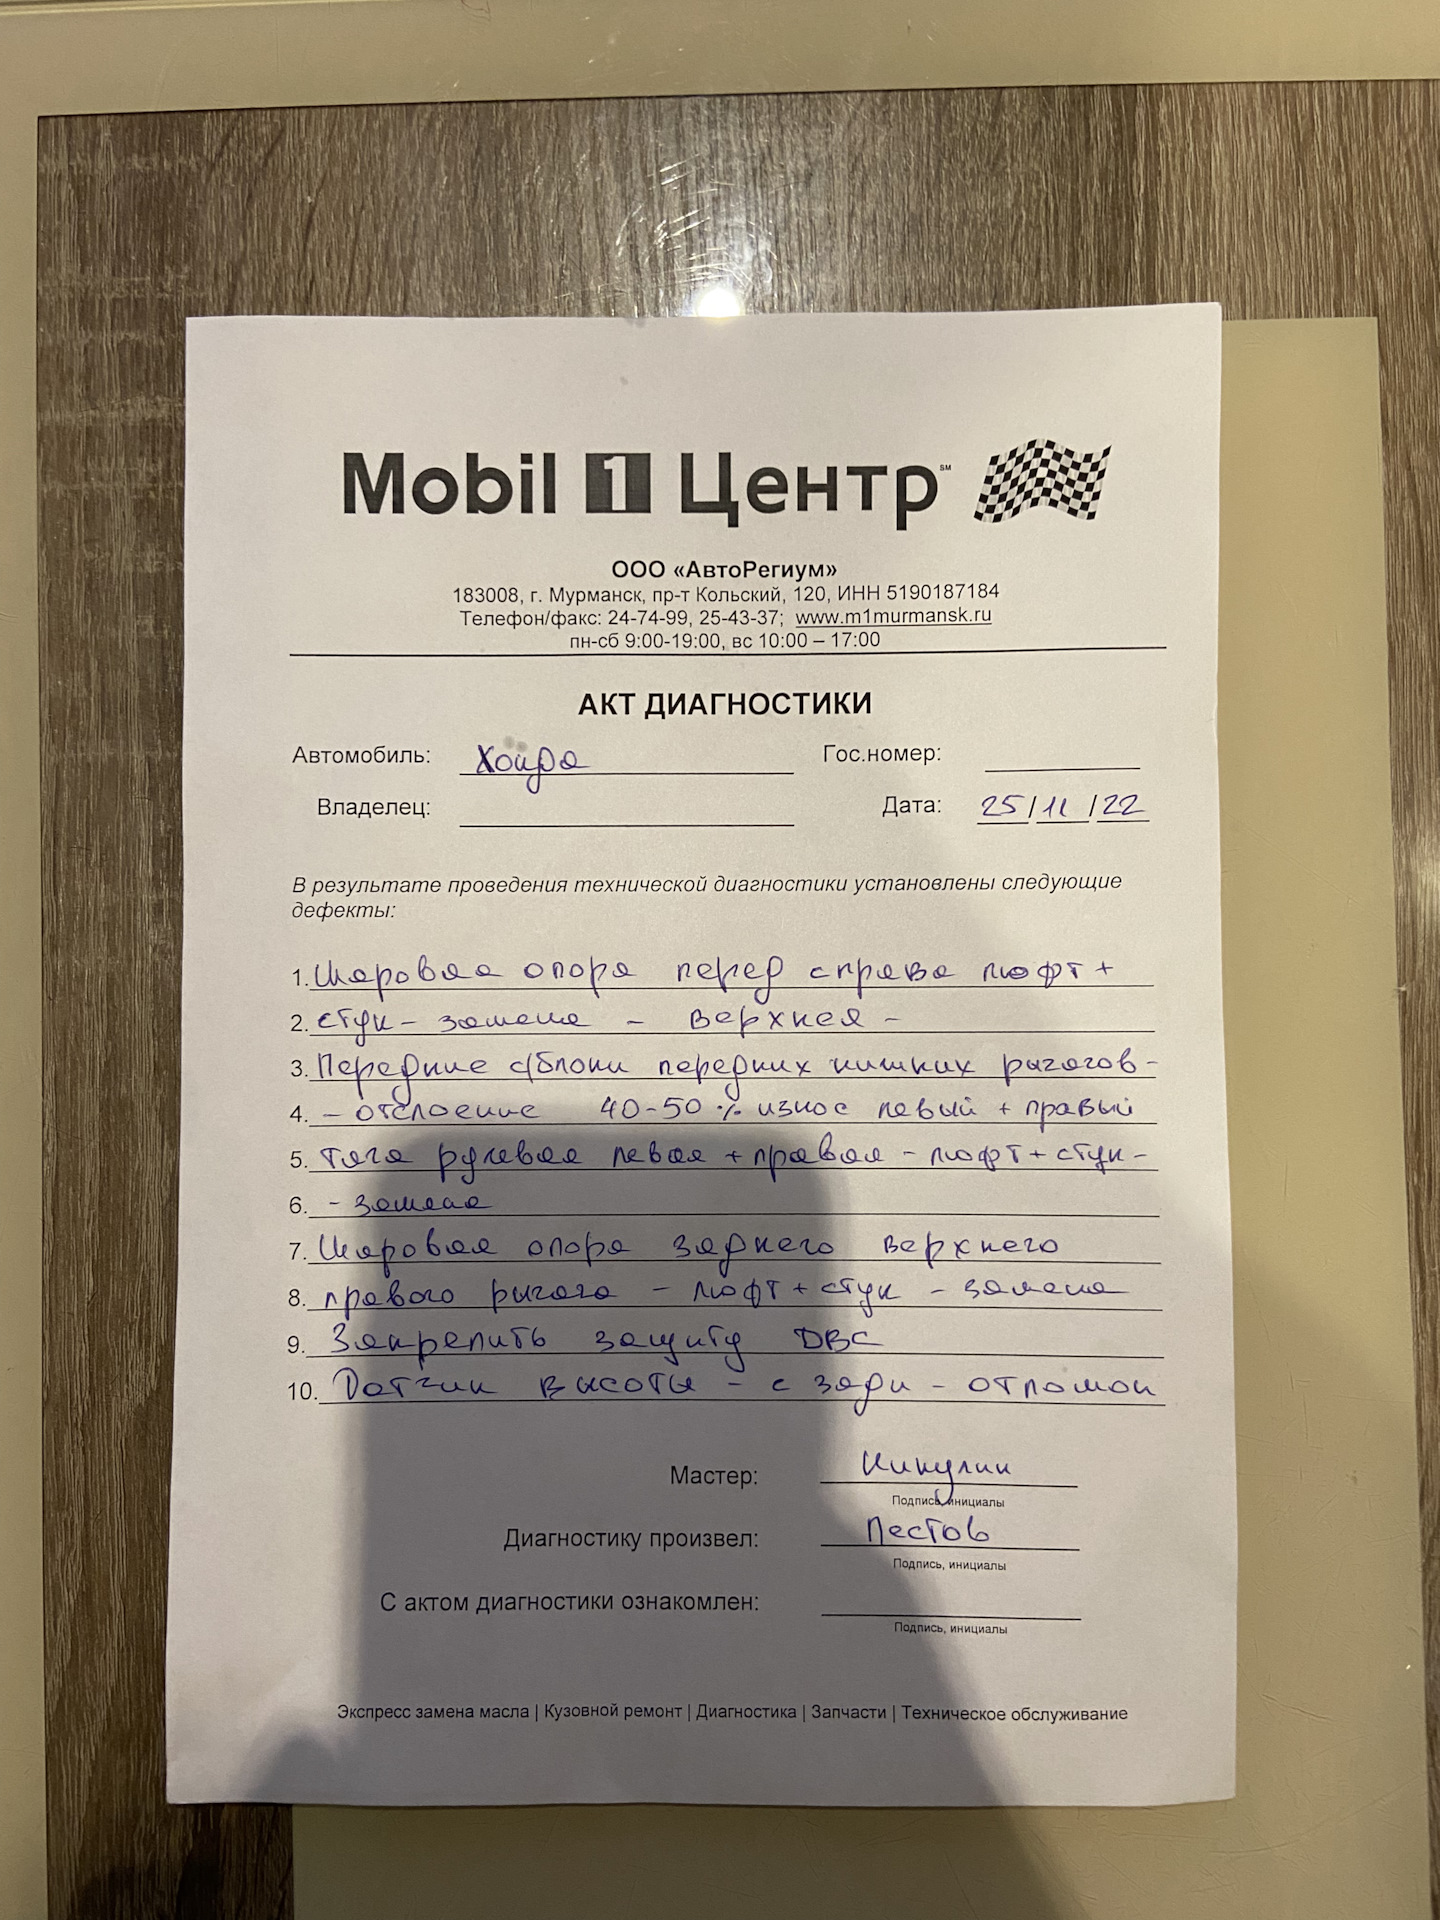 Mobil 1 Центр SM
ООО «АвтоРегиум»
183008, г. Мурманск, пр-т Кольский, 120, ИНН 5190187184
Телефон/факс: 24-74-99, 25-43-37; www.m1murmansk.ru
пн-сб 9:00-19:00, вс 10:00 – 17:00
АКТ ДИАГНОСТИКИ
Автомобиль: Хонда Гос.номер:
Владелец: Дата: 25/11/22
В результате проведения технической диагностики установлены следующие
дефекты:
1. Шаровая опора перед справа люфт +
2. стук - замена - верхняя -
3. Передние с/блоки передних нижних рычагов -
4. - отслоение 40-50 % износ левый + правый
5. Тяга рулевая левая + правая - люфт + стук -
6. - замена
7. Шаровая опора заднего верхнего
8. правого рычага - люфт + стук - замена
9. Закрепить защиту ДВС
10. Датчик высоты - с зади - отломан
Мастер: Никулин
Подпись, инициалы
Диагностику произвел: Пестов
Подпись, инициалы
С актом диагностики ознакомлен:
Подпись, инициалы
Экспресс замена масла | Кузовной ремонт | Диагностика | Запчасти | Техническое обслуживание